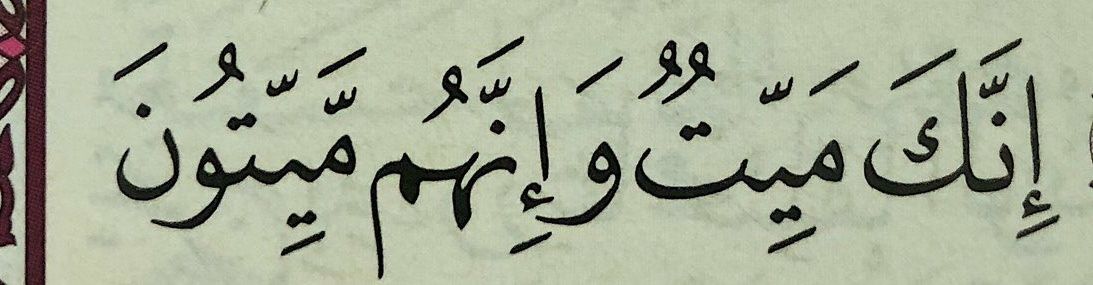 إِنَّكَ مَيِّتٌ وَإِنَّهُم مَّيِّتُونَ